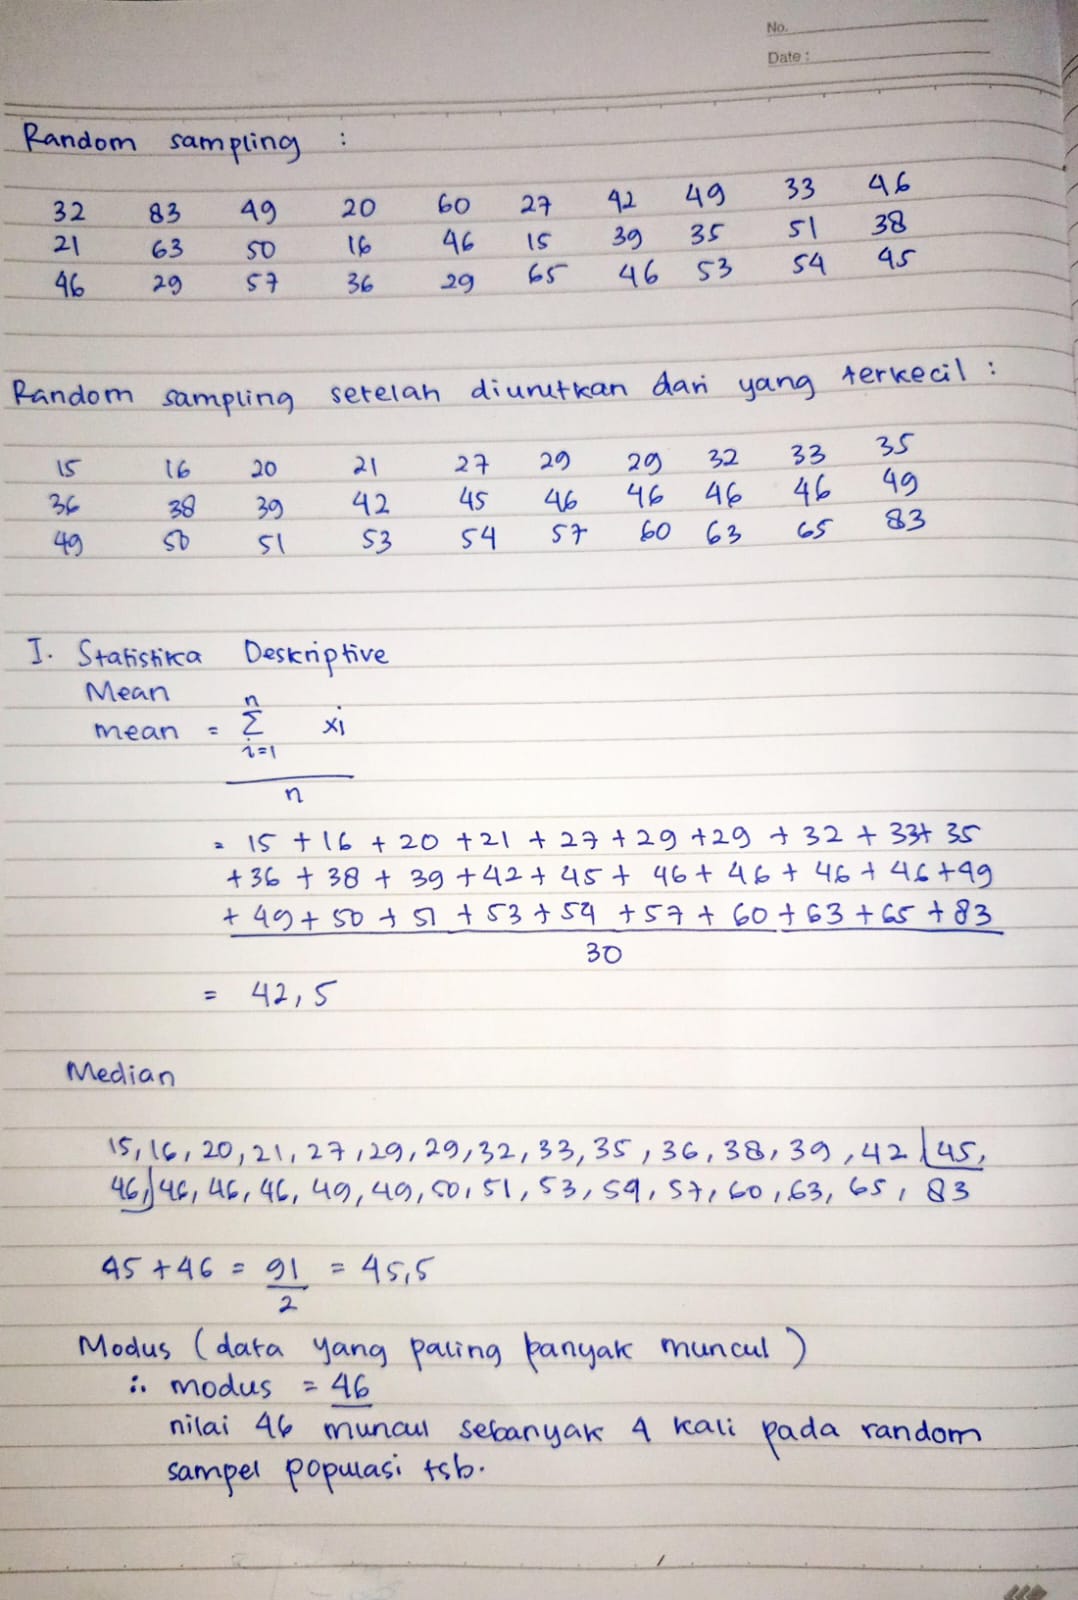 No.
Date :
Random sampling :
32 83 49 20 60 27 42 49 33 46
21 63 50 16 46 15 39 35 51 38
46 29 57 36 29 65 46 53 54 45
Random sampling setelah diurutkan dari yang terkecil :
15 16 20 21 27 29 29 32 33 35
36 38 39 42 45 46 46 46 46 49
49 50 51 53 54 57 60 63 65 83
I. Statistika Deskriptive
Mean
n
mean = Σ xi
i=1
n
= 15 + 16 + 20 + 21 + 27 + 29 + 29 + 32 + 33 + 35
+ 36 + 38 + 39 + 42 + 45 + 46 + 46 + 46 + 46 + 49
+ 49 + 50 + 51 + 53 + 54 + 57 + 60 + 63 + 65 + 83
30
= 42,5
Median
15, 16, 20, 21, 27, 29, 29, 32, 33, 35, 36, 38, 39, 42 | 45,
46,| 46, 46, 46, 49, 49, 50, 51, 53, 54, 57, 60, 63, 65, 83
45 + 46 = 91 = 45,5
2
Modus (data yang paling banyak muncul)
∴ modus = 46
nilai 46 muncul sebanyak 4 kali pada random
sampel populasi tsb.